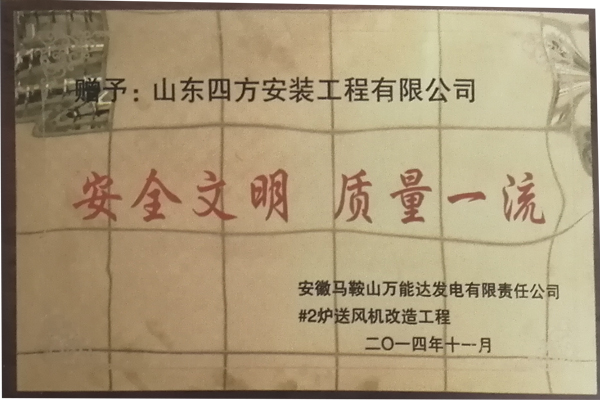 赠予：山东四方安装工程有限公司
安全文明 质量一流
安徽马鞍山万能达发电有限责任公司
#2炉送风机改造工程
二〇一四年十一月